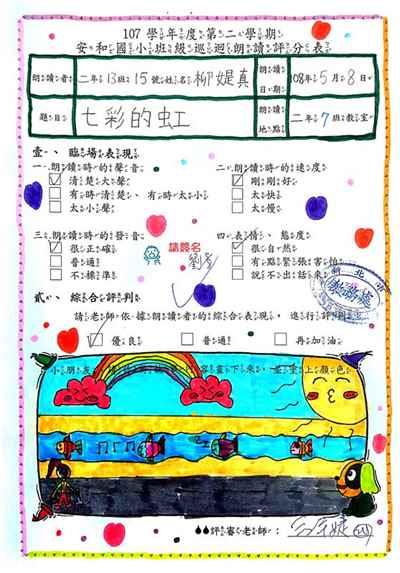 107學年度第二學期
安和國小班級巡迴朗讀評分表
朗讀者 二年13班15號姓名柳媞真 朗讀日期 108年5月8日
題目 七彩的虹 朗讀地點 二年7班教室
壹、臨場表現
一、朗讀時的聲音
清楚大聲
有時清楚、有時太小
太小聲
二、朗讀時的速度
剛剛好
太快
太慢
三、朗讀時的發音
很正確
普通
不標準
請簽名
四、表情、態度
很自然
有點緊張害怕
說不出話來
新北市
教務處
貳、綜合評判
請老師依據朗讀者的綜合表現，進行評判
優良
普通
再加油
小朋友
下來，並塗上顏色
評審老師：